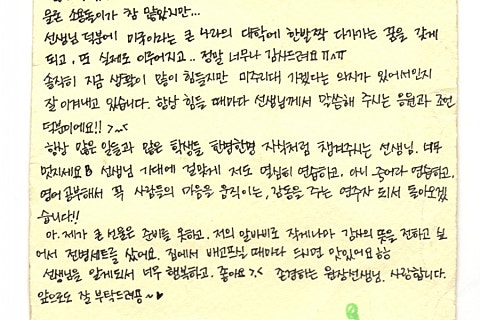 선생님 덕분에 미국이라는 큰 나라의 대학에 한발짝 다가가는 꿈을 갖게
되고, 또 실제로 이루어지고.. 정말 너무나 감사드려요 ㅠㅅㅠ
솔직히 지금 생활이 많이 힘들지만 미주리대 가겠다는 의지가 있어서인지
잘 이겨내고 있습니다. 항상 힘들 때마다 선생님께서 말씀해 주시는 응원과 조언
덕분이에요!! >..<
항상 많은 일들과 많은 학생들 한명한명 자식처럼 챙겨주시는 선생님. 너무
멋지세요 선생님 기대에 걸맞게 저도 열심히 연습하고, 아니 죽어라 연습하고,
영어 공부해서 꼭 사람들의 마음을 움직이는, 감동을 주는 연주자 되서 돌아오겠
습니다!!
아. 제가 큰 선물은 준비를 못하고. 저의 알바비로 작게나마 감사의 뜻을 전하고 싶
어서 전병세트를 샀어요. 집에서 배고프실 때마다 드시면 맛있어요 ㅎㅎ
선생님을 알게되서 너무 행복하고. 좋아요 >.< 존경하는 원장선생님. 사랑합니다.
앞으로도 잘 부탁드려용 ~ ♥